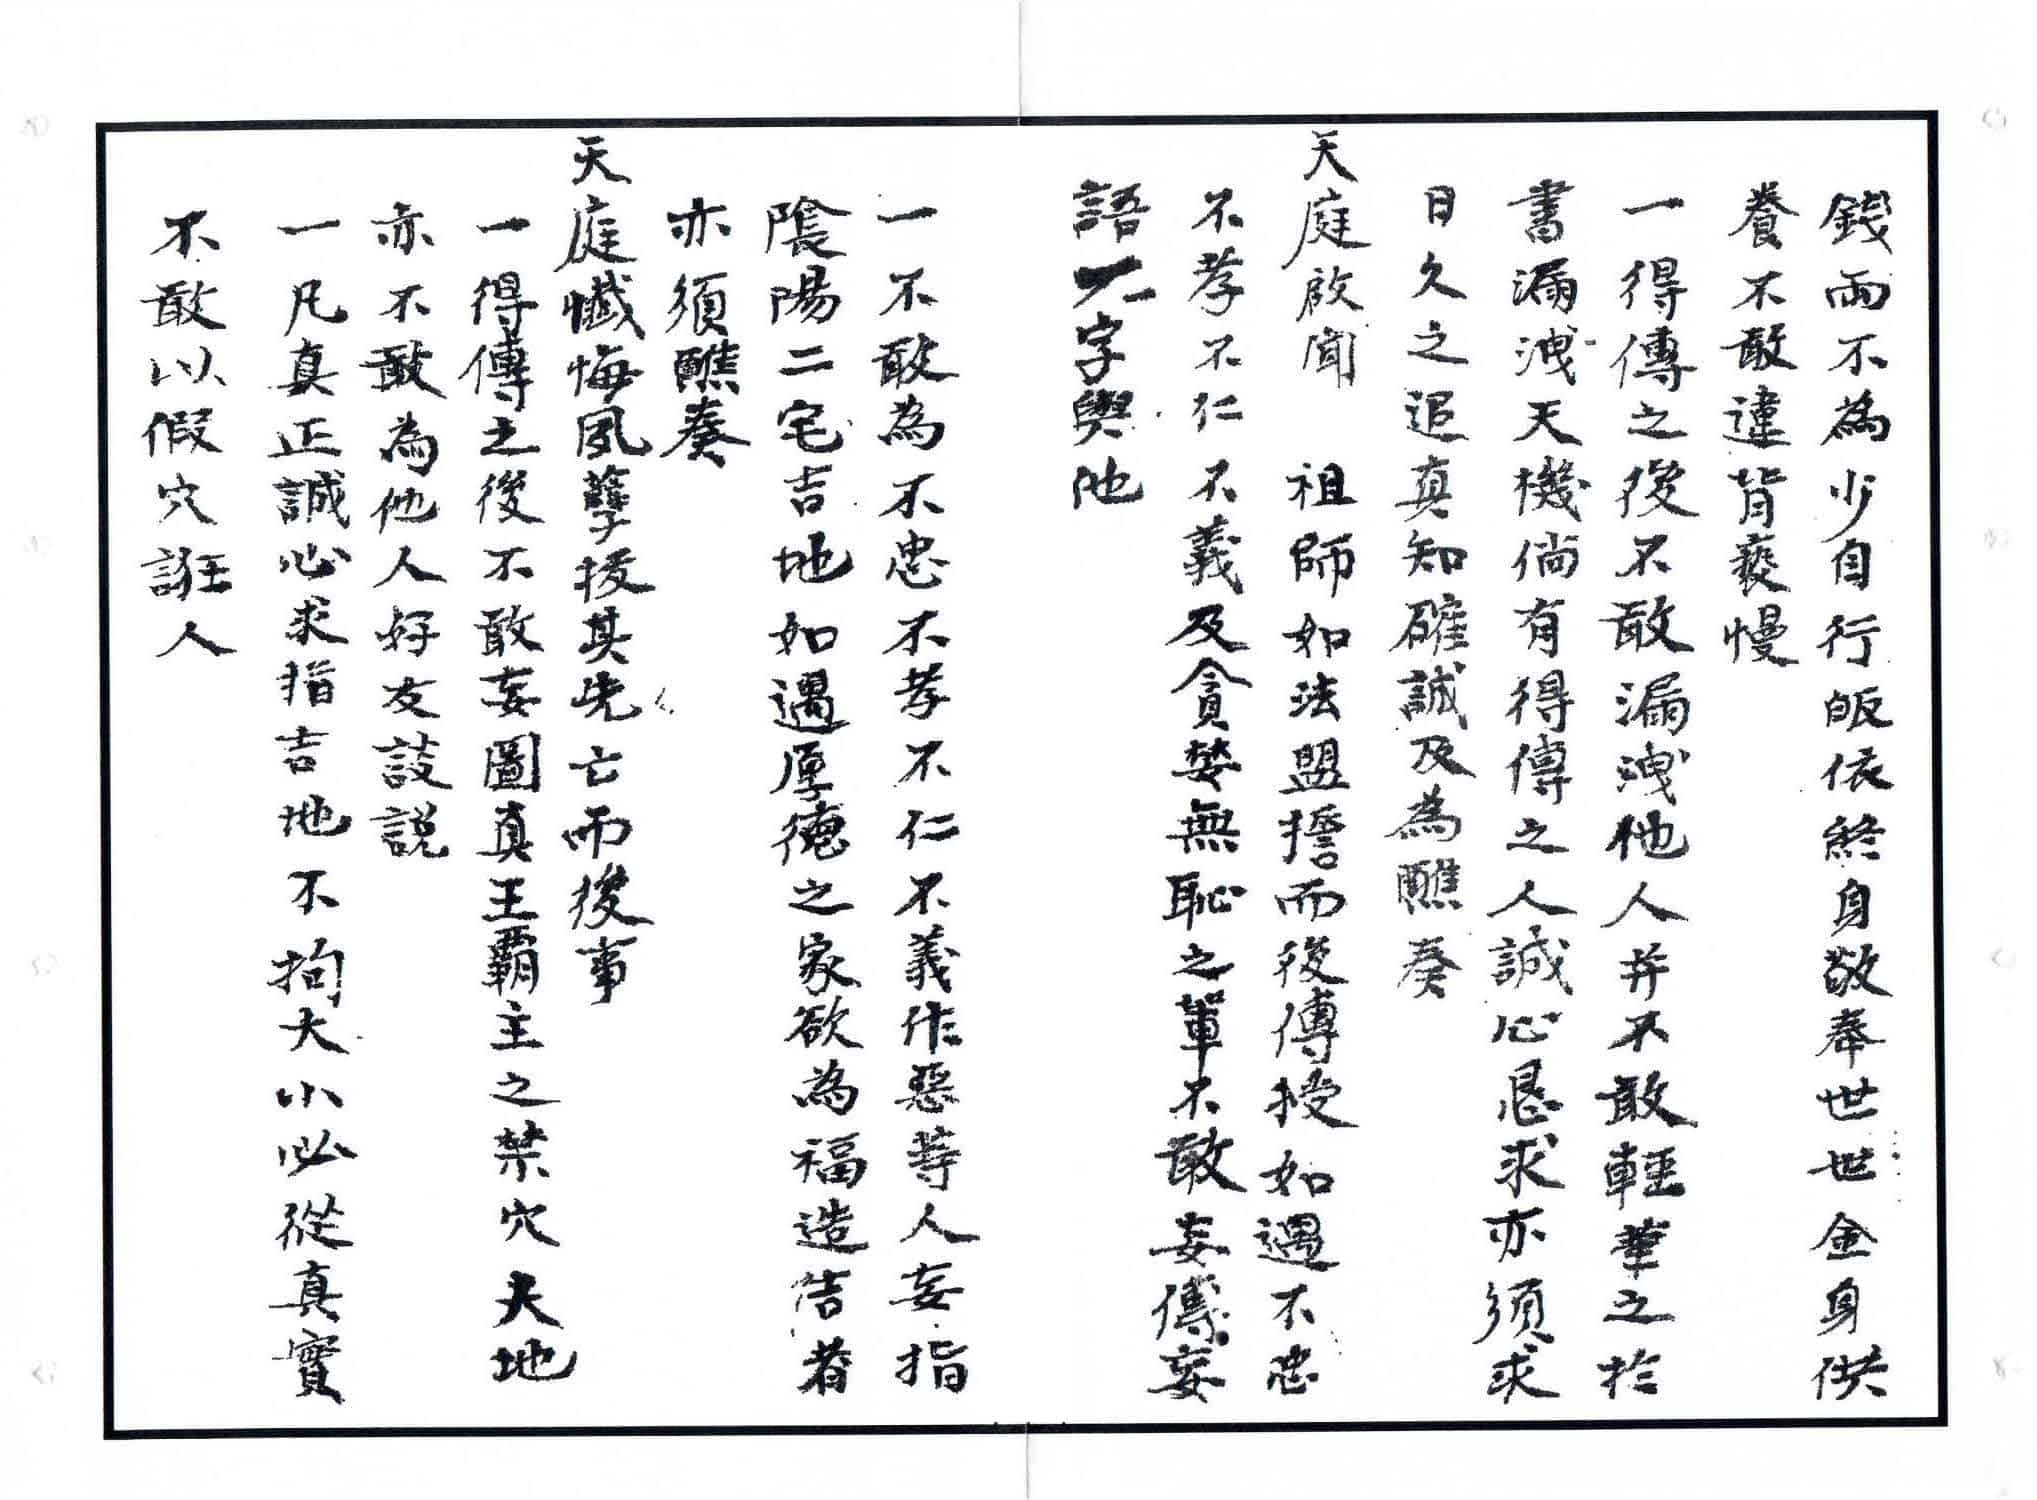 錢而不為少自行皈依終身敬奉世世金身供
養不敢違背褻慢
一得傳之後不敢漏洩他人并不敢輕筆之於
書漏洩天機倘有得傳之人誠心恳求亦須求
日久之追真知確誠及為醮奏
天庭啟聞　祖師如法盟擔而後傳授如遇不忠
不孝不仁不義及貪婪無恥之輩不敢妄傳妄
語一字與他
一不敢為不忠不孝不仁不義作惡等人妄指
陰陽二宅吉地如遇厚德之家欲為福造吉者
亦須醮奏
天庭懺悔夙孽援其先亡而後事
一得傳之後不敢妄圖真王霸主之禁穴天地
亦不敢為他人好友談説
一凡真正誠心求指吉地不拘大小必從真實
不敢以假穴誑人